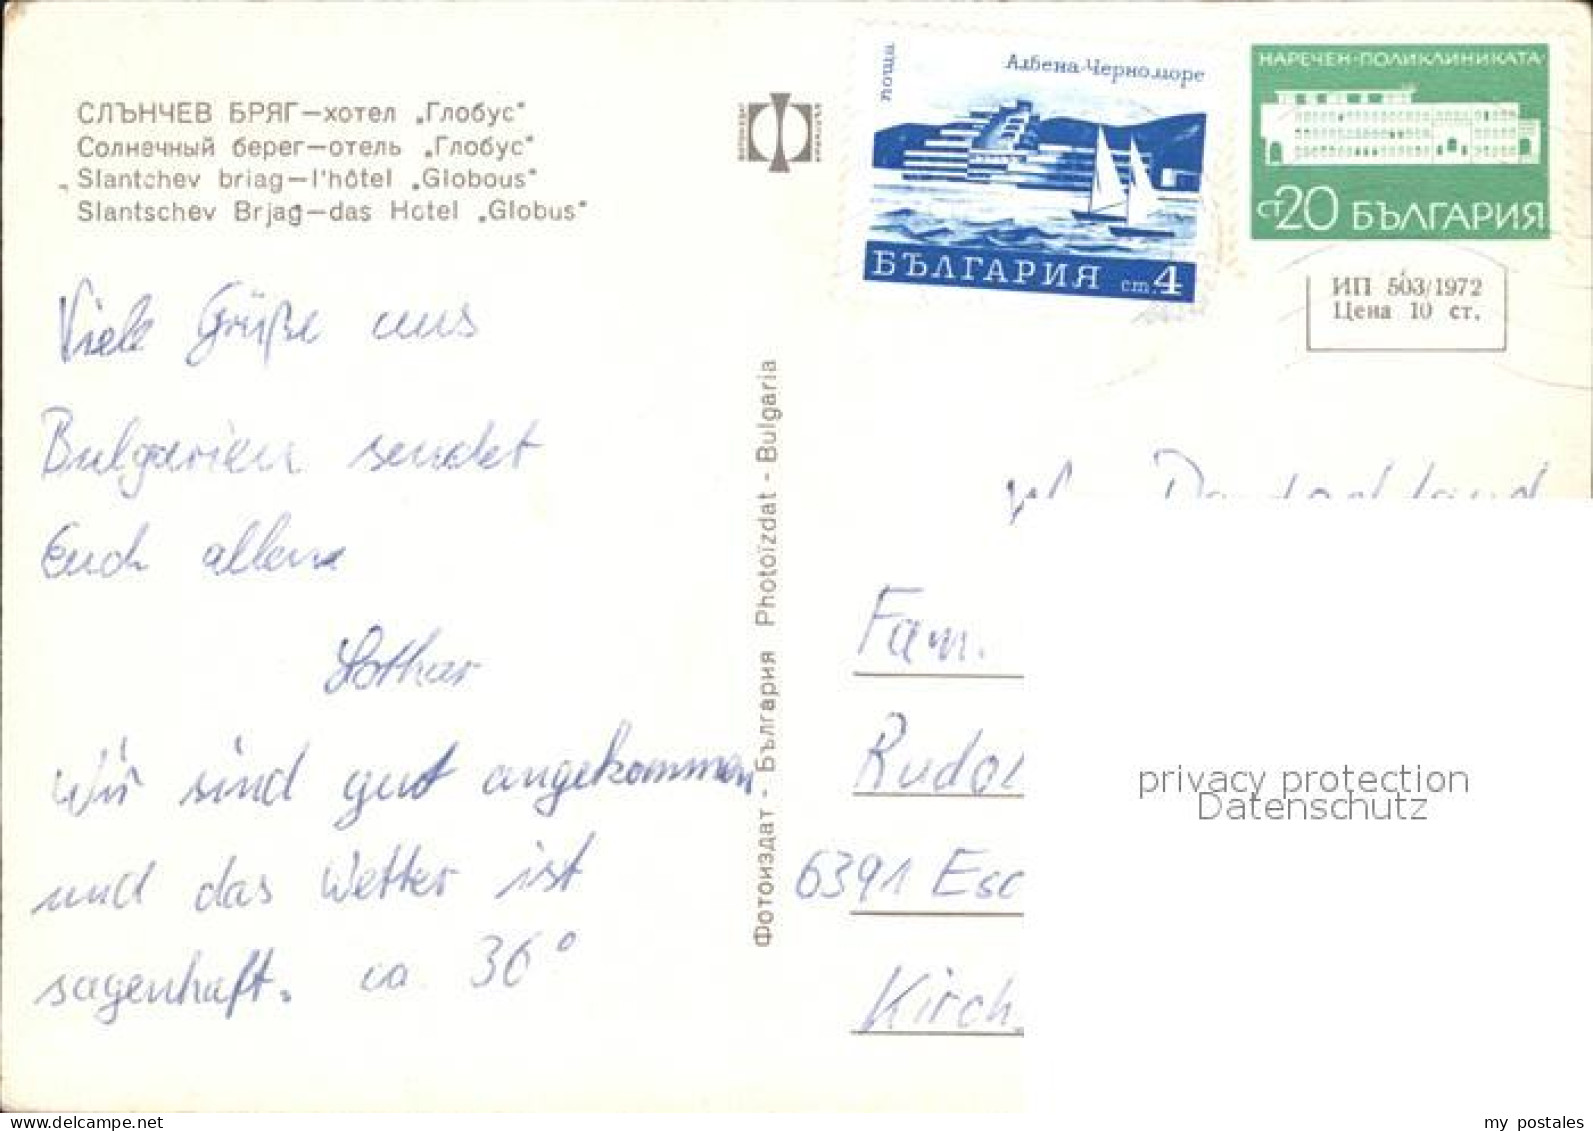 СЛЪНЧЕВ БРЯГ—хотел „Глобус“
Солнечный берег—отель „Глобус“
Slantchev briag—l'hôtel „Globous“
Slantschev Brjag—das Hotel „Globus“
поща
Албена-Черноморе
БЪЛГАРИЯ ст. 4
НАРЕЧЕН-ПОЛИКЛИНИКАТА
ст 20 БЪЛГАРИЯ
ИП 503/1972
Цена 10 ст.
Viele Grüße aus
Bulgarien sendet
Euch allen
Lothar
Wir sind gut angekommen
und das Wetter ist
sagenhaft. ca. 36°
Фотоиздат - България Photoïzdat - Bulgaria
Deutschland
Fam.
Rudol
6391 Esc
Kirch
privacy protection
Datenschutz
my postales